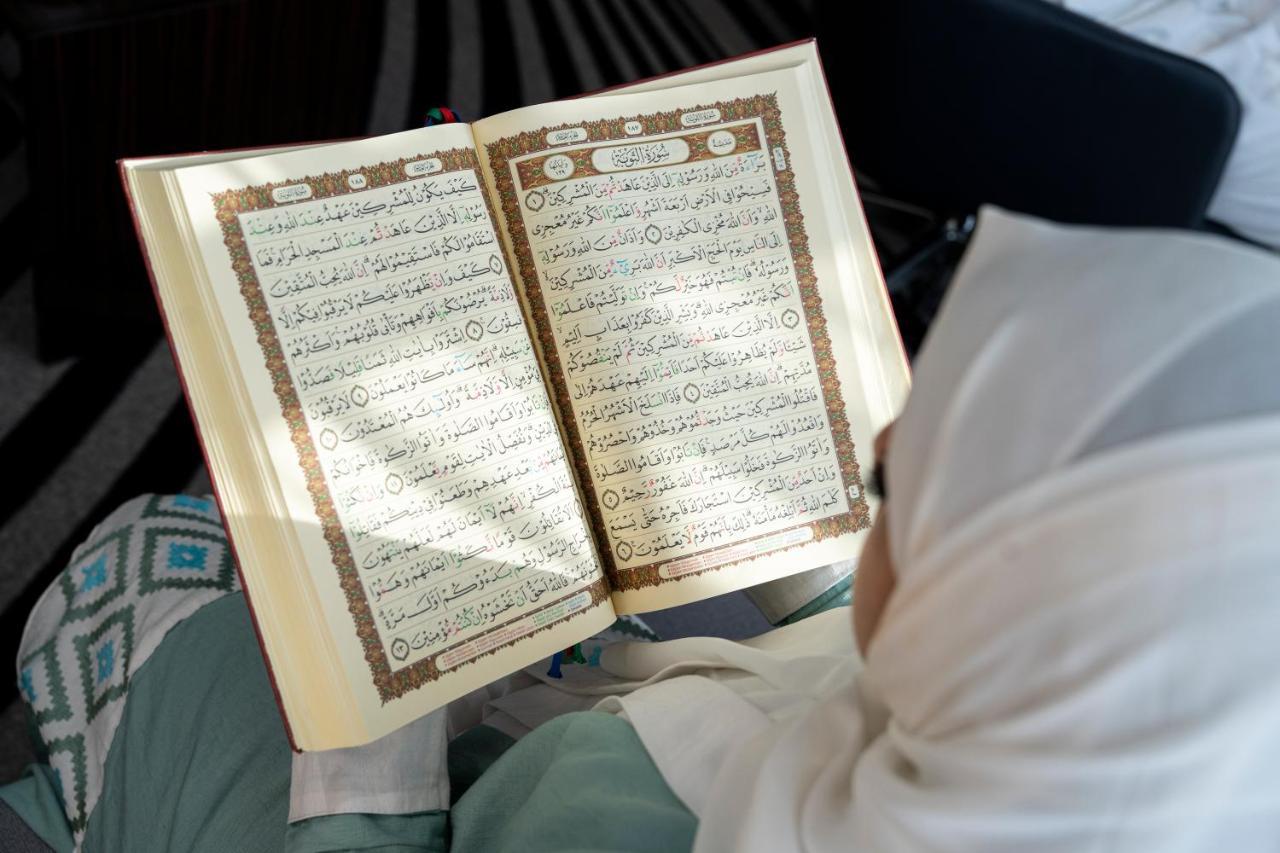 سُورَةُ التَّوْبَةِ ١٨٧
سُورَةُ التَّوْبَةِ ١٢٩
بَرَآءَةٌ مِنَ اللهِ وَرَسُولِهٖٓ اِلَى الَّذِينَ عَاهَدْتُمْ مِنَ الْمُشْرِكِينَ ١
فَسِيحُوا فِي الْاَرْضِ اَرْبَعَةَ اَشْهُرٍ وَاعْلَمُٓوا اَنَّكُمْ غَيْرُ مُعْجِزِي
اللهِ وَاَنَّ اللهَ مُخْزِي الْكَافِرِينَ ٢ وَاَذَانٌ مِنَ اللهِ وَرَسُولِهٖٓ
اِلَى النَّاسِ يَوْمَ الْحَجِّ الْاَكْبَرِ اَنَّ اللهَ بَرِٓيءٌ مِنَ الْمُشْرِكِينَ
وَرَسُولُهُ فَاِنْ تُبْتُمْ فَهُوَ خَيْرٌ لَكُمْ وَاِنْ تَوَلَّيْتُمْ فَاعْلَمُٓوا
اَنَّكُمْ غَيْرُ مُعْجِزِي اللهِ وَبَشِّرِ الَّذِينَ كَفَرُوا بِعَذَابٍ اَلِيمٍ
٣ اِلَّا الَّذِينَ عَاهَدْتُمْ مِنَ الْمُشْرِكِينَ ثُمَّ لَمْ يَنْقُصُوكُمْ
شَيْـًٔا وَلَمْ يُظَاهِرُوا عَلَيْكُمْ اَحَدًا فَاَتِمُّٓوا اِلَيْهِمْ عَهْدَهُمْ اِلٰى
مُدَّتِهِمْ اِنَّ اللهَ يُحِبُّ الْمُتَّقِينَ ٤ فَاِذَا انْسَلَخَ الْاَشْهُرُ الْحُرُمُ
فَاقْتُلُوا الْمُشْرِكِينَ حَيْثُ وَجَدْتُمُوهُمْ وَخُذُوهُمْ وَاحْصُرُوهُمْ
وَاقْعُدُوا لَهُمْ كُلَّ مَرْصَدٍ فَاِنْ تَابُوا وَاَقَامُوا الصَّلٰوةَ
وَاٰتَوُا الزَّكٰوةَ فَخَلُّوا سَبِيلَهُمْ اِنَّ اللهَ غَفُورٌ رَحِيمٌ ٥
وَاِنْ اَحَدٌ مِنَ الْمُشْرِكِينَ اسْتَجَارَكَ فَاَجِرْهُ حَتّٰى يَسْمَعَ
كَلَامَ اللهِ ثُمَّ اَبْلِغْهُ مَأْمَنَهُ ذٰلِكَ بِاَنَّهُمْ قَوْمٌ لَا يَعْلَمُونَ ٦
١٨٨ سُورَةُ التَّوْبَةِ
كَيْفَ يَكُونُ لِلْمُشْرِكِينَ عَهْدٌ عِنْدَ اللهِ وَعِنْدَ
رَسُولِهٖٓ اِلَّا الَّذِينَ عَاهَدْتُمْ عِنْدَ الْمَسْجِدِ الْحَرَامِ فَمَا
اسْتَقَامُوا لَكُمْ فَاسْتَقِيمُوا لَهُمْ اِنَّ اللهَ يُحِبُّ الْمُتَّقِينَ
٧ كَيْفَ وَاِنْ يَظْهَرُوا عَلَيْكُمْ لَا يَرْقُبُوا فِيكُمْ اِلًّا
وَلَا ذِمَّةً يُرْضُونَكُمْ بِاَفْوَاهِهِمْ وَتَأْبٰى قُلُوبُهُمْ وَاَكْثَرُهُمْ
فَاسِقُونَ ٨ اِشْتَرَوْا بِاٰيَاتِ اللهِ ثَمَنًا قَلِيلًا فَصَدُّوا
عَنْ سَبِيلِهٖ اِنَّهُمْ سَٓاءَ مَا كَانُوا يَعْمَلُونَ ٩ لَا يَرْقُبُونَ
مُؤْمِنٍ اِلًّا وَلَا ذِمَّةً وَاُولٰٓئِكَ هُمُ الْمُعْتَدُونَ ١٠
تَابُوا وَاَقَامُوا الصَّلٰوةَ وَاٰتَوُا الزَّكٰوةَ فَاِخْوَانُكُمْ
الدِّينِ وَنُفَصِّلُ الْاٰيَاتِ لِقَوْمٍ يَعْلَمُونَ ١١ وَاِنْ نَكَثُٓوا
مِنْ بَعْدِ عَهْدِهِمْ وَطَعَنُوا فِي دِينِكُمْ فَقَاتِلُٓوا
الْكُفْرِ اِنَّهُمْ لَٓا اَيْمَانَ لَهُمْ لَعَلَّهُمْ يَنْتَهُونَ
اَلَا تُقَاتِلُونَ قَوْمًا نَكَثُٓوا اَيْمَانَهُمْ وَهَمُّوا
الرَّسُولِ وَهُمْ بَدَؤُكُمْ اَوَّلَ مَرَّةٍ
فَاللهُ اَحَقُّ اَنْ تَخْشَوْهُ اِنْ كُنْتُمْ مُؤْمِنِينَ ١٣